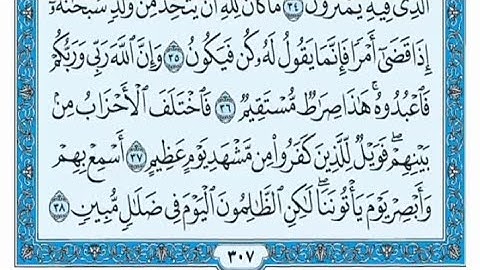 ٱلَّذِى فِيهِ يَمْتَرُونَ ٣٤ مَا كَانَ لِلَّهِ أَن يَتَّخِذَ مِن وَلَدٍ سُبْحَٰنَهُۥٓ
إِذَا قَضَىٰٓ أَمْرًا فَإِنَّمَا يَقُولُ لَهُۥ كُن فَيَكُونُ ٣٥ وَإِنَّ ٱللَّهَ رَبِّى وَرَبُّكُمْ
فَٱعْبُدُوهُ ۚ هَٰذَا صِرَٰطٌ مُّسْتَقِيمٌ ٣٦ فَٱخْتَلَفَ ٱلْأَحْزَابُ مِنۢ
بَيْنِهِمْ ۖ فَوَيْلٌ لِّلَّذِينَ كَفَرُوا۟ مِن مَّشْهَدِ يَوْمٍ عَظِيمٍ ٣٧ أَسْمِعْ بِهِمْ
وَأَبْصِرْ يَوْمَ يَأْتُونَنَا ۖ لَٰكِنِ ٱلظَّٰلِمُونَ ٱلْيَوْمَ فِى ضَلَٰلٍ مُّبِينٍ ٣٨
٣٠٧